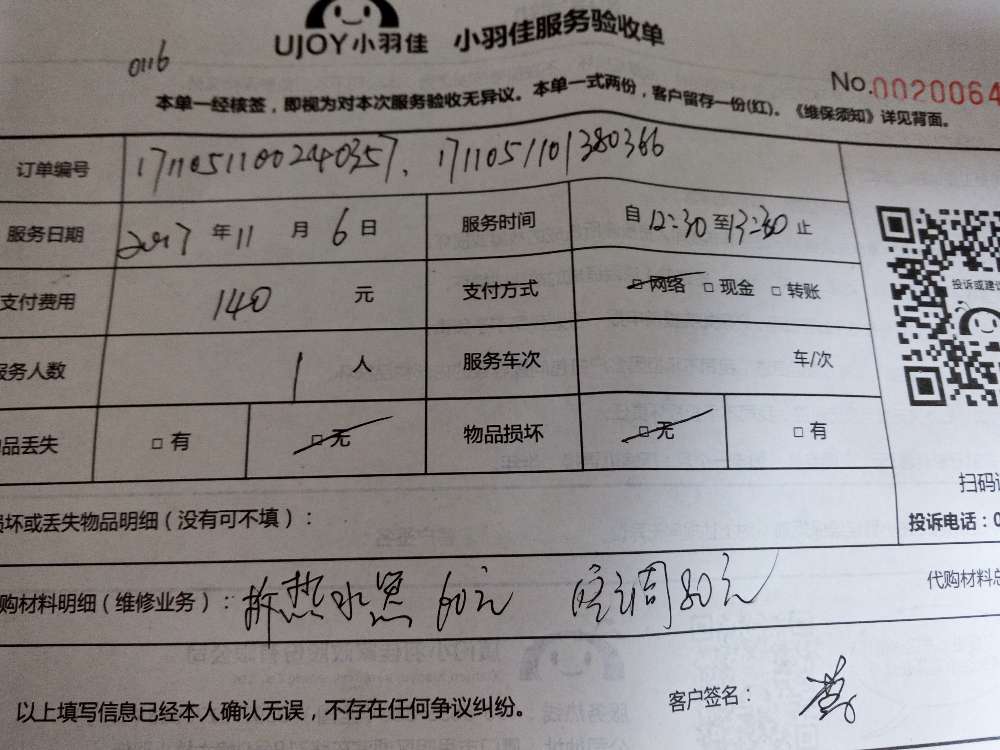 UJOY小羽佳 小羽佳服务验收单
0116
No.0020064
本单一经核签，即视为对本次服务验收无异议。本单一式两份，客户留存一份(红)。《维保须知》详见背面。
订单编号 171105110024 0357、1711051101380366
服务日期 2017年11月6日 服务时间 自12:30至13:30止
支付费用 140元 支付方式 □网络 □现金 □转账
投诉或建议
服务人数 1人 服务车次 车/次
品丢失 □有 □无 物品损坏 □无 □有
扫码
损坏或丢失物品明细（没有可不填）： 投诉电话：0
购材料明细（维修业务）：拆热水器 60元 空调80元 代购材料总
以上填写信息已经本人确认无误，不存在任何争议纠纷。 客户签名：